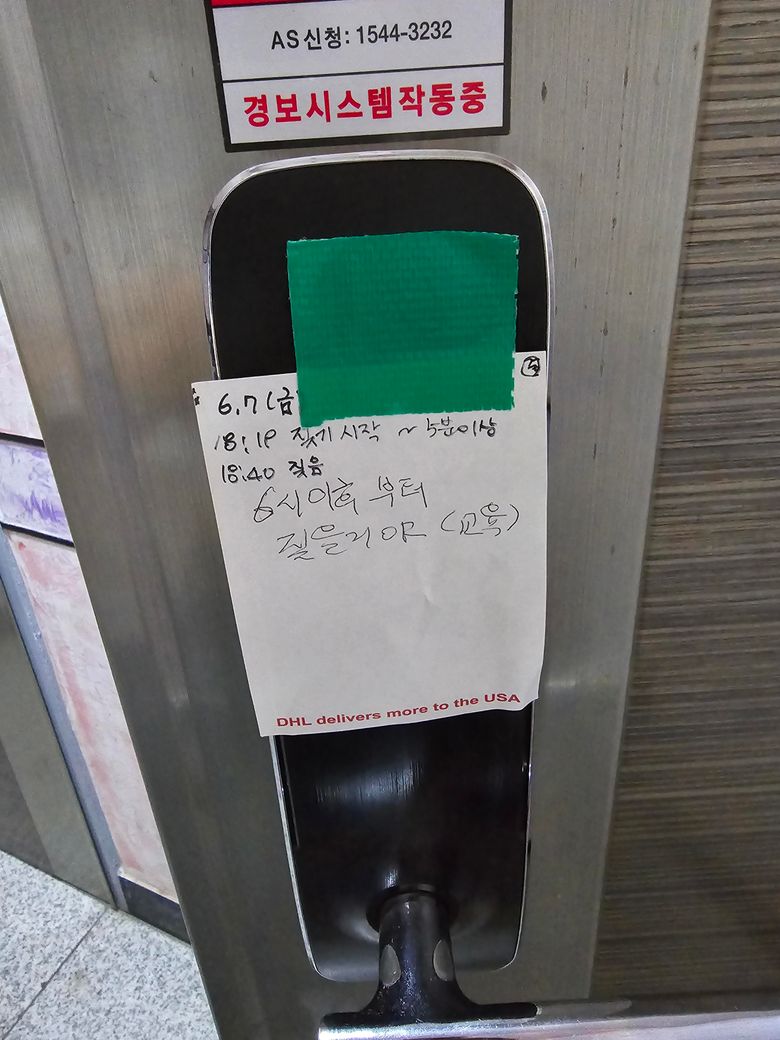 AS신청: 1544-3232
경보시스템작동중
6.7(금
18:19 짖기 시작 ~ 5분이상
18:40 짖음
6시이후 부터
짖을거야 (교육)
DHL delivers more to the USA